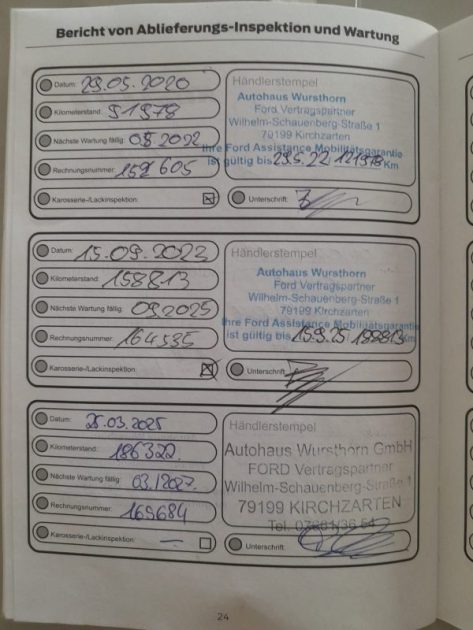 Bericht von Ablieferungs-Inspektion und Wartung
Datum: 29.05.2020
Kilometerstand: 91978
Nächste Wartung fällig: 05.2022
Rechnungsnummer: 152605
Karosserie-/Lackinspektion:
Händlerstempel
Autohaus Wursthorn
Ford Vertragspartner
Wilhelm-Schauenberg-Straße 1
79199 Kirchzarten
Ihre Ford Assistance Mobilitätsgarantie
ist gültig bis 29.5.22 / 121978 Km
Unterschrift:
Datum: 15.09.2023
Kilometerstand: 158813
Nächste Wartung fällig: 09.2025
Rechnungsnummer: 164535
Karosserie-/Lackinspektion:
Händlerstempel
Autohaus Wursthorn
Ford Vertragspartner
Wilhelm-Schauenberg-Straße 1
79199 Kirchzarten
Ihre Ford Assistance Mobilitätsgarantie
ist gültig bis 15.9.25 / 188813 Km
Unterschrift:
Datum: 25.03.2025
Kilometerstand: 186322
Nächste Wartung fällig: 03./2027.
Rechnungsnummer: 169684
Karosserie-/Lackinspektion: —
Händlerstempel
Autohaus Wursthorn GmbH
FORD Vertragspartner
Wilhelm-Schauenberg-Straße 1
79199 KIRCHZARTEN
Tel.
Unterschrift:
24